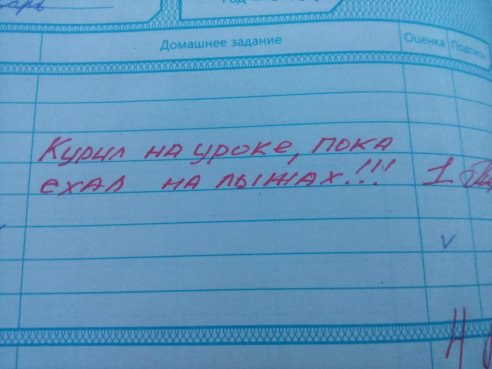 Домашнее задание Оценка Подпись
Курил на уроке, пока
ехал на лыжах!!! 1